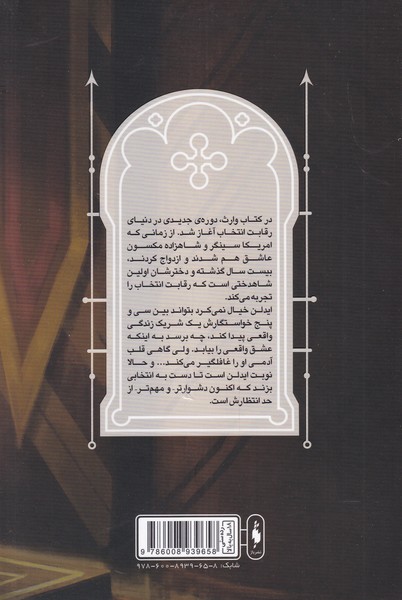 در کتاب وارث، دوره‌ی جدیدی در دنیای
رقابت انتخاب آغاز شد. از زمانی که
امریکا سینگر و شاهزاده مکسون
عاشق هم شدند و ازدواج کردند،
بیست سال گذشته و دخترشان اولین
شاهدختی است که رقابت انتخاب را
تجربه می‌کند.
ایدلن خیال نمی‌کرد بتواند بین سی و
پنج خواستگارش یک شریک زندگی
واقعی پیدا کند، چه برسد به اینکه
عشق واقعی را بیابد. ولی گاهی قلب
آدمی او را غافلگیر می‌کند... و حالا
نوبت ایدلن است تا دست به انتخابی
بزند که اکنون دشوارتر و مهم‌تر، از
حد انتظارش است.
9 786008 939658
شابک: ۸-۶۵-۸۹۳۹-۶۰۰-۹۷۸